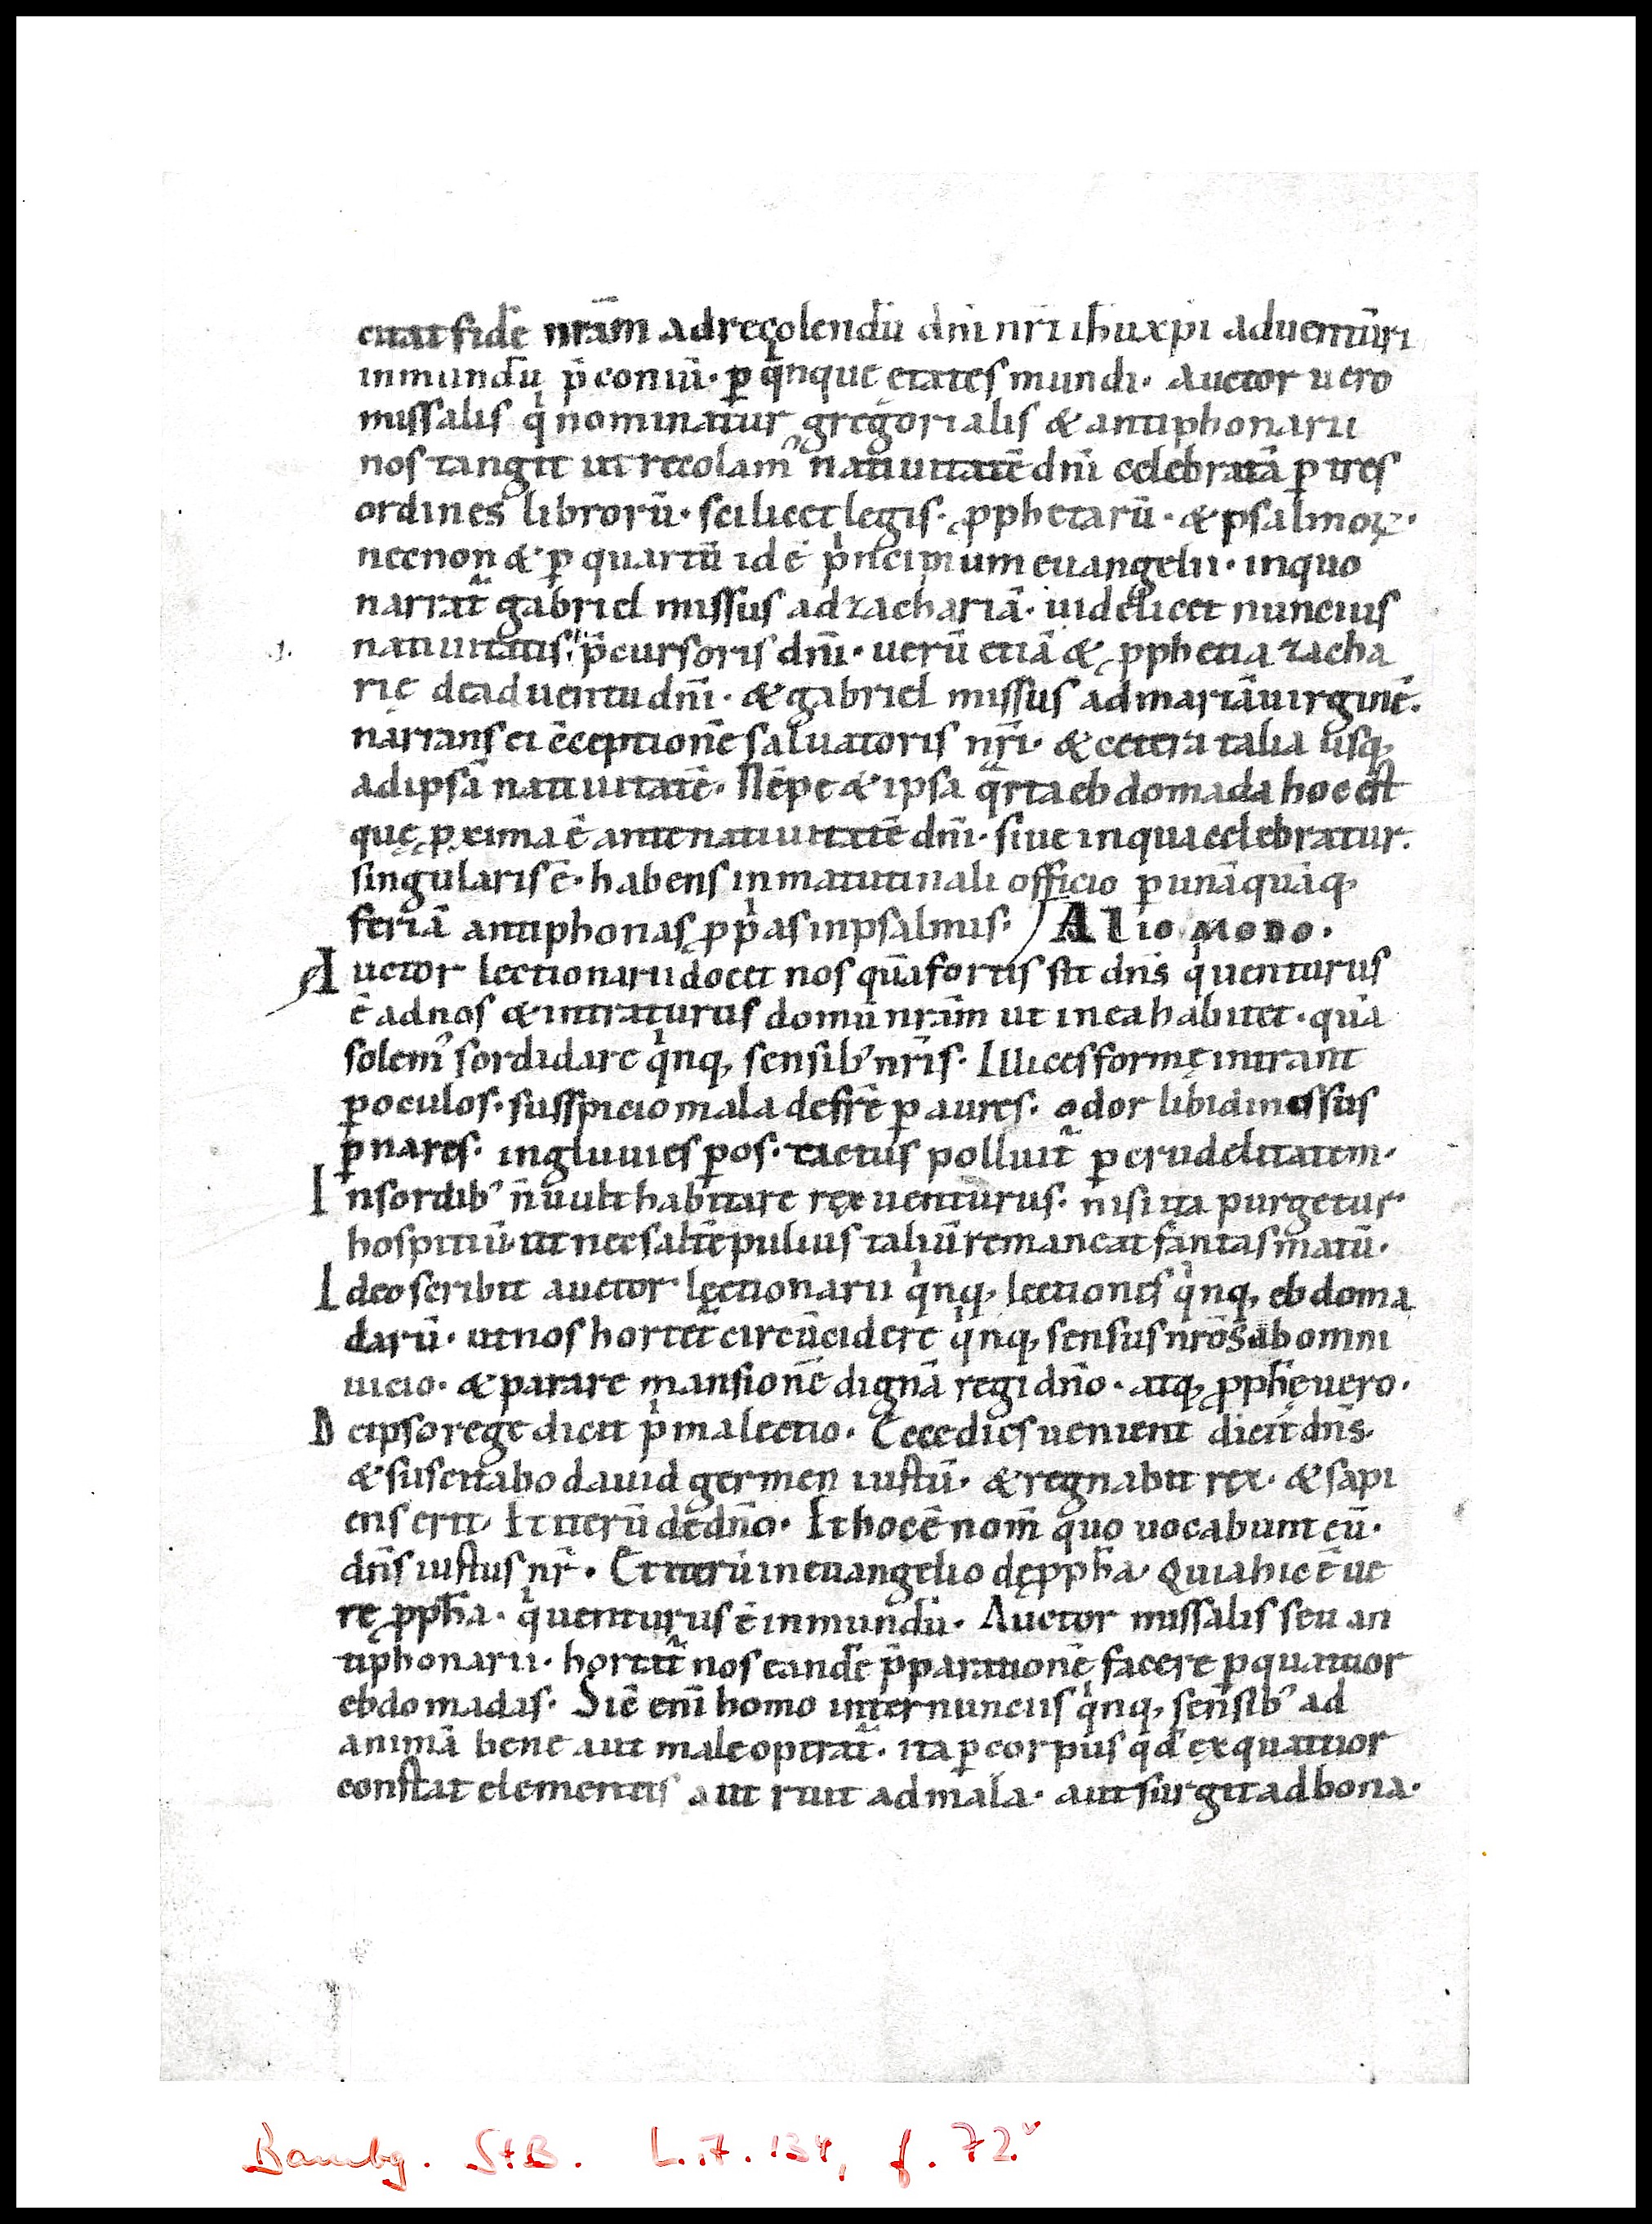 citat fidē nr̄am ad recolendū dn̄i nr̄i ih̄u xp̄i aduentū ri
in mundū p̄coniū · ꝑ qͥnque ętates mundi · Auctor uero
missalis qͥ nominatur gregorialis & antiphonarii
nos tangit ut recolam᷒ natiuitatē dn̄i celebratā ꝑ tres
ordines librorū · scilicet legis · ꝓphetarū · & psalmoꝝ ·
necnon & ꝑ quartū idē pͥncipium euangelii · in quo
narrat᷑ gabriel missus ad zachariā · uidelicet nuncius
natiuitatis p̄cursoris dn̄i · uerū etiā & ꝓphetia zacha
rię de aduentu dn̄i · & gabriel missus ad mariā uirginē ·
narrans ei c̄ceptionē saluatoris nr̄i · & cetera talia usq,
ad ipsā natiuitatē · Nēpe & ipsa qͣrta ebdomada hoc est
quę ꝓxima ē ante natiuitatē dn̄i · siue in qua celebratur ·
singularis ē · habens in matutinali officio ꝑ unāquāq,
feriā antiphonas ꝓpͥas in psalmis · ALIO MODO ·
Auctor lectionarii docet nos quā fortis sit dn̄s qͥ uenturus
ē ad nos & intraturus domū nr̄am ut in ea habitet · quā
solem᷒ sordidare qͥnq, sensib᷒ nr̄is · Illices formę intrant
ꝑ oculos · suspicio mala de fr̄e ꝑ aures · odor libidinosus
ꝑ nares · ingluuies ꝑ os · tactus polluit᷑ ꝑ crudelitatem ·
In sordib᷒ n̄ uult habitare rex uenturus · nisi ita purgetur
hospitiū ut nec saltē puluis taliū remaneat fantasmatū ·
Ideo scribit auctor lectionarii qͥnq, lectiones qͥnq, ebdoma
darū · ut nos hortet᷑ circūcidere qͥnq, sensus nr̄os ab omni
uicio · & parare mansionē dignā regi dn̄o · atq, ꝓph̄ę uero ·
De ipso rege dicit pͥma lectio · Ecce dies uenient dicit dn̄s ·
& suscitabo dauid germen iustū · & regnabit rex · & sapi
ens erit · Et iterū de dn̄o · Et hoc ē nom̄ quo uocabunt eū ·
dn̄s iustus nr̄ · Et iterū in euangelio de ꝓph̄a · Quia hic ē ue
re ꝓph̄a · qͥ uenturus ē in mundū · Auctor missalis seu an
tiphonarii · hortat᷑ nos eandē p̄parationē facere ꝑ quattuor
ebdomadas · Sic enī homo internunciis qͥnq, sensib᷒ ad
animā bene aut male optrat᷑ · ita ꝑ corpus qd̄ ex quattuor
constat elementis aut ruit ad mala · aut surgit ad bona ·
Bambg. StB. Lit. 134, f. 72ᵛ